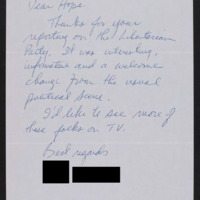 Dear Hope
Thanks for your
reporting on the Libertarian
Party. It was interesting,
informative and a welcome
change from the usual
political scene.
I'd like to see more of
these folks on TV.
Best regards